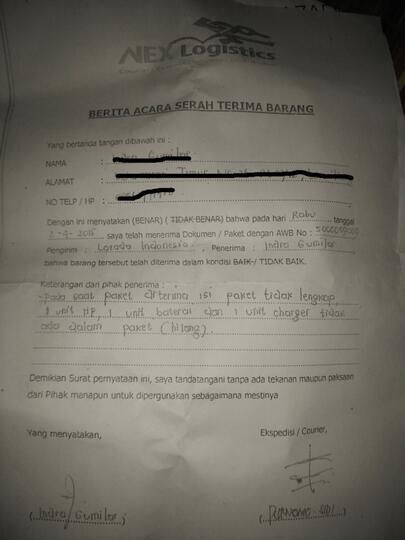 NEX Logistics
BERITA ACARA SERAH TERIMA BARANG
Yang bertanda tangan dibawah ini :
NAMA :
ALAMAT :
NO TELP / HP :
Dengan ini menyatakan (BENAR) (TIDAK BENAR) bahwa pada hari Rabu tanggal
saya telah menerima Dokumen / Paket dengan AWB No :
Pengirim : Lazada Indonesia, Penerima : Indra Gumilar
bahwa barang tersebut telah diterima dalam kondisi BAIK / TIDAK BAIK.
Keterangan dari pihak penerima :
- Pada saat paket diterima isi paket tidak lengkap,
1 unit HP, 1 unit baterai dan 1 unit charger tidak
ada dalam paket (hilang).
Demikian Surat pernyataan ini, saya tandatangani tanpa ada tekanan maupun paksaan
dari Pihak manapun untuk dipergunakan sebagaimana mestinya
Yang menyatakan,
Ekspedisi / Courier,
(Indra Gumilar)